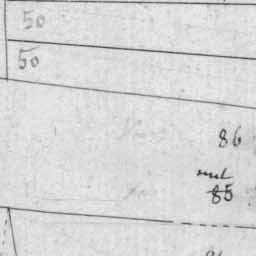 50
50
86
85